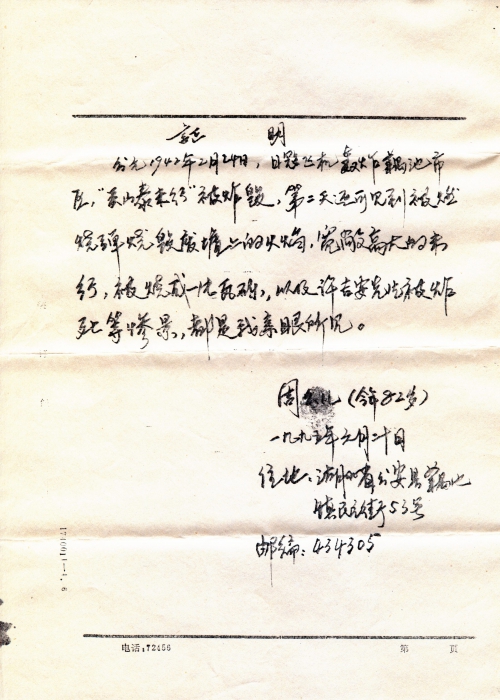 证 明
公元1942年2月24日，日寇飞机轰炸藕池市
区，"泰来行"被炸毁，第二天还可见到被燃
烧弹烧毁废墟上的火焰，宽敞高大的来
行，被烧成一片瓦砾，以及许吉安先生被炸
死等惨景，都是我亲眼所见。
周 （今年82岁）
一九九五年元月二十日
住地：湖北省公安县藕池
镇民主街53号
邮编：434305
电话:72456
第 页